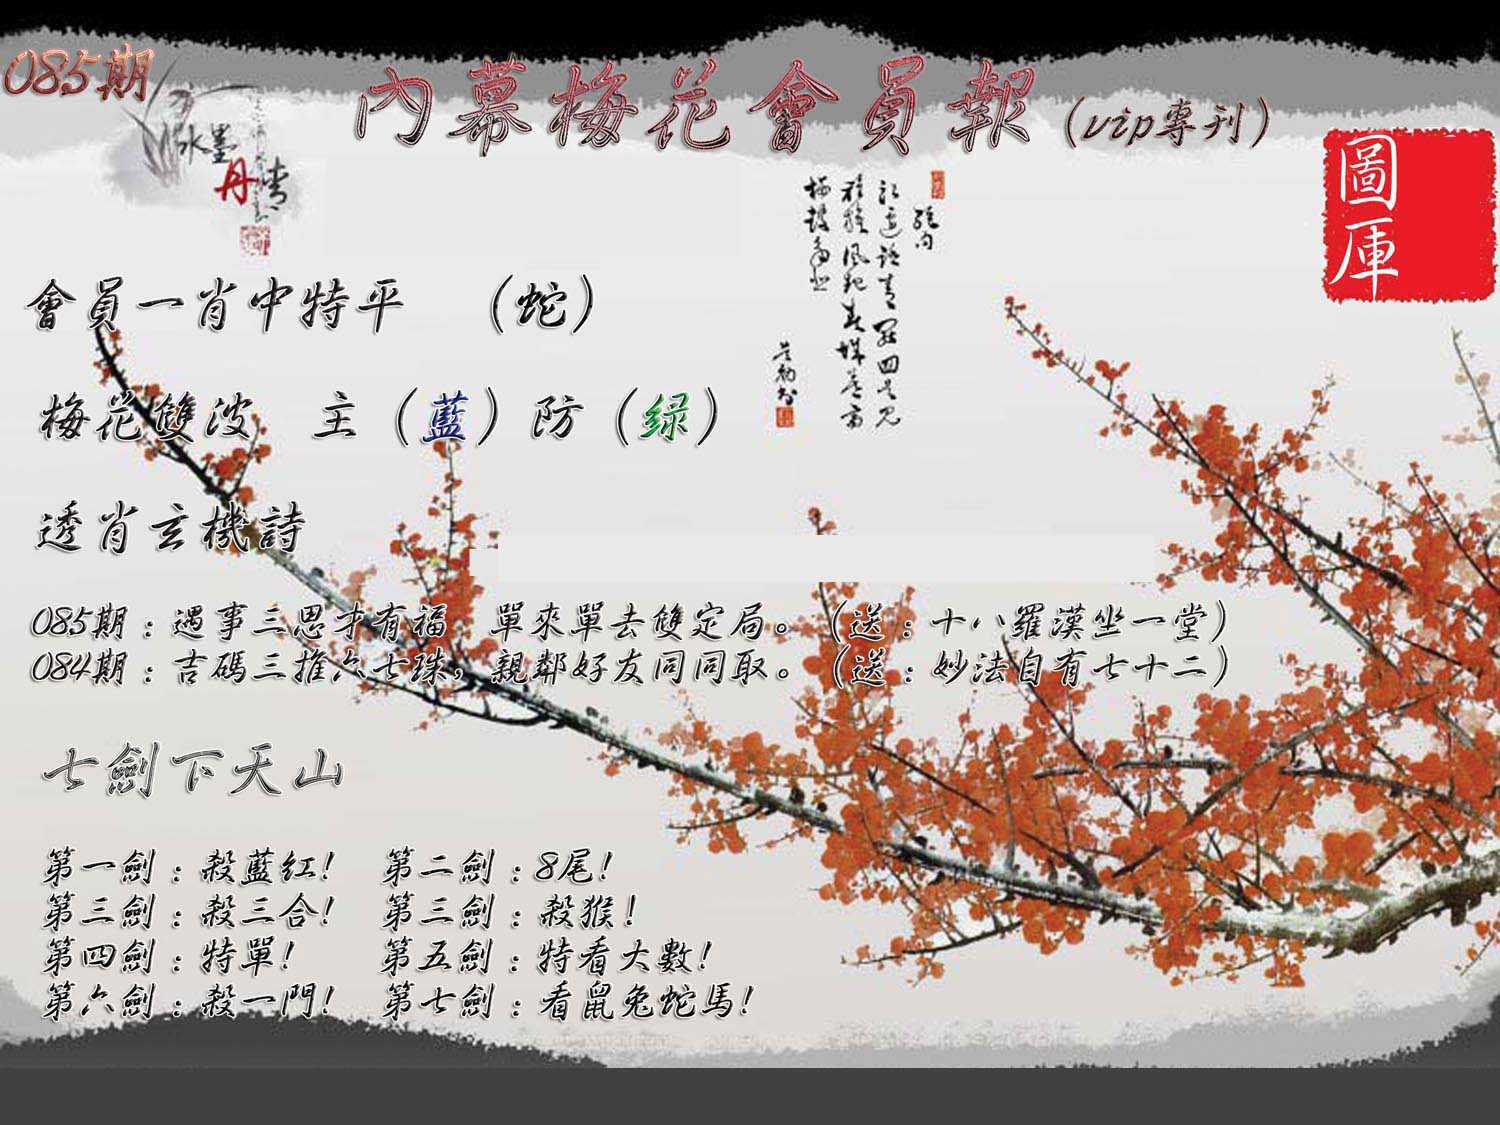 085期
內幕梅花會員報（vip專刊）
水墨
丹青
圖庫
會員一肖中特平　（蛇）
梅花雙波　主（藍）防（绿）
透肖玄機詩
085期：遇事三思才有福　單來單去雙定局。（送：十八羅漢坐一堂）
084期：吉碼三推六七珠，親鄰好友同同取。（送：妙法自有七十二）
七劍下天山
第一劍：殺藍红！　第二劍：8尾！
第三劍：殺三合！　第三劍：殺猴！
第四劍：特單！　第五劍：特看大數！
第六劍：殺一門！　第七劍：看鼠兔蛇馬！